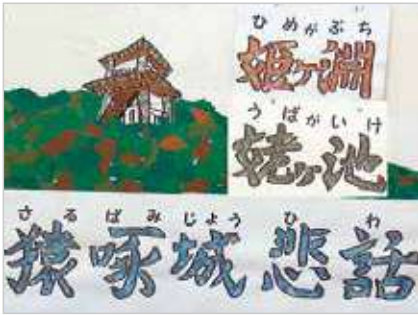 ひめがぶち
姫ヶ淵
うばがいけ
姥ヶ池
さるばみじょうひわ
猿啄城悲話